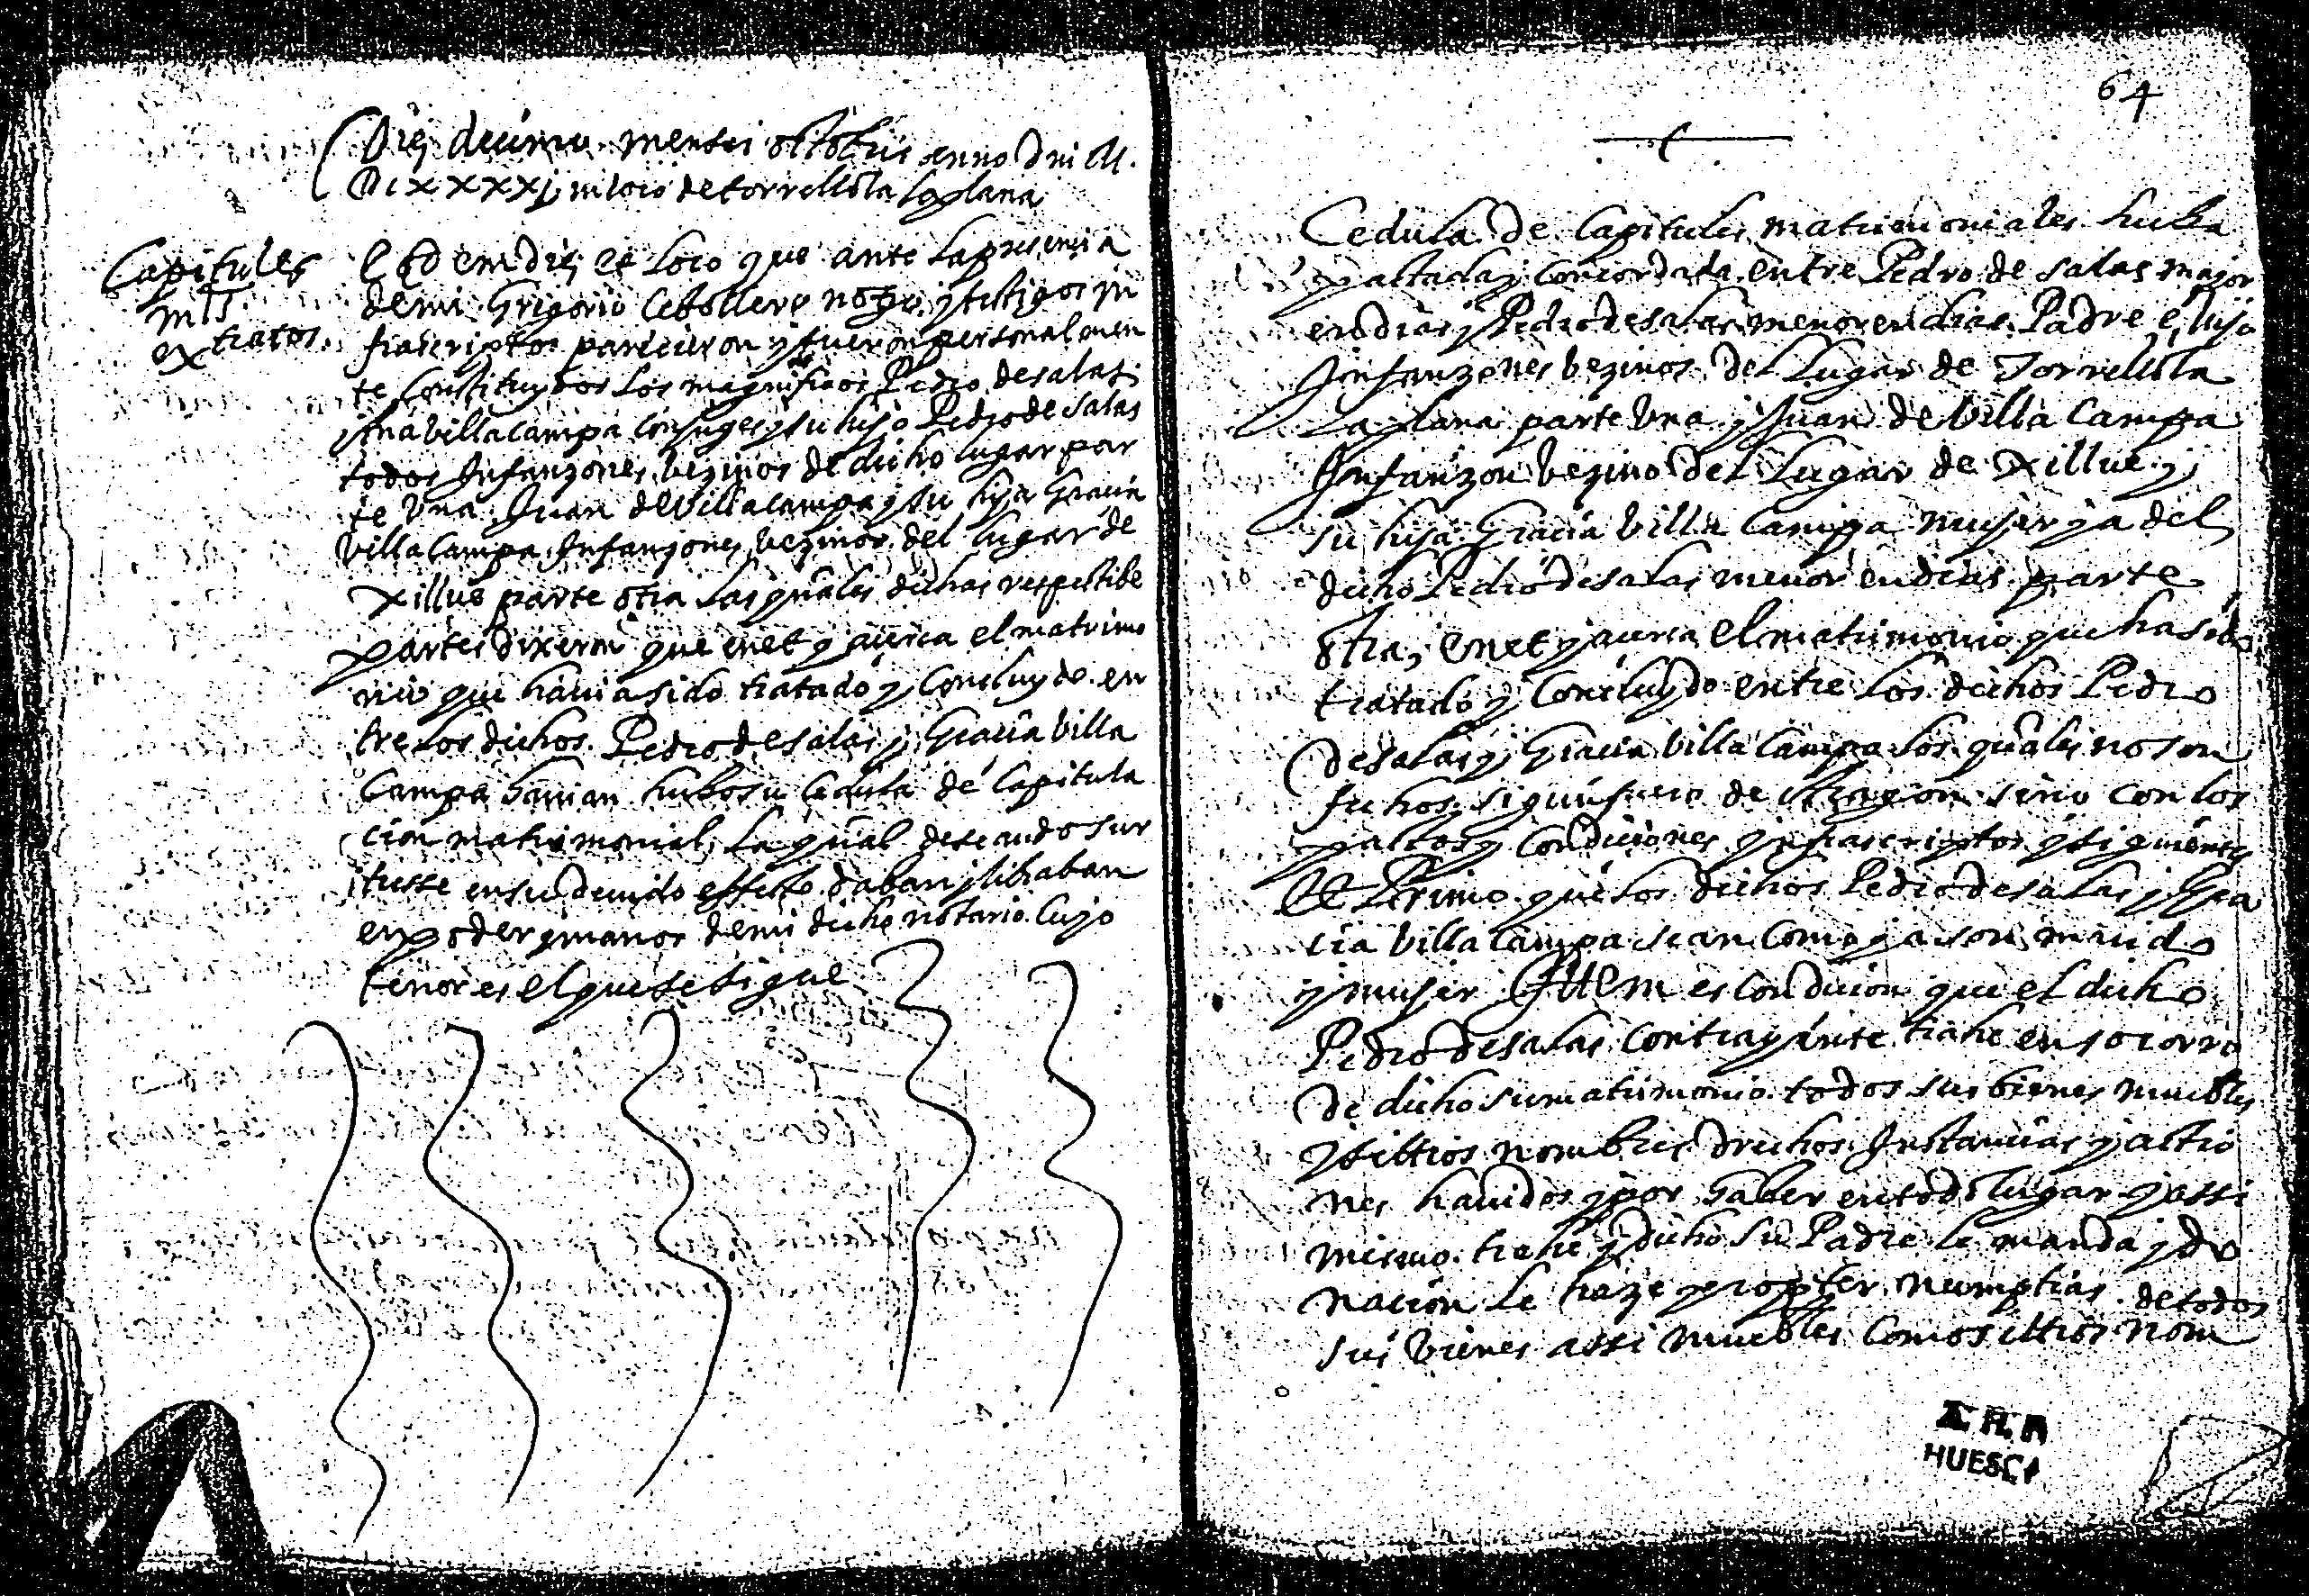 Die decimo mensis octobris anno Dni M.
DCXXXXJ, in loco de torrellola la plana
Capitules
mts.
extractos.
Eodem die et loco que ante la presencia
de mi Grigorio Cebollero notro. y testigos in
frascriptos parecieron y fueron personalmen
te constituydos los magnificos Pedro de salas
y Ana villacampa conjuges y su hijo Pedro de salas
todos Infanzones, bezinos de dicho lugar par
te Una, Juan de Villacampa y su hija Gracia
villa Campa Infanzones, bezinos del lugar de
Xillue parte otra las quales dichas respectibe
partes dixeron que en et y acerca el matrimo
nio que havia sido tratado y concluydo en
tre los dichos Pedro de salas y Gracia Villa
Campa havian hecho su cedula de Capitula
cion matrimonial, la qual deseando sur
tiesse en su devido effecto daban y libraban
en poder y manos de mi dicho notario. Cujo
tenor es el que se sigue
64
Cedula de Capitules matrimoniales hecha
pactada y concordada entre Pedro de salas mayor
en dias y Pedro de salas menor en dias Padre e hijo
Infanzones bezinos del Lugar de Torrellola
La plana parte Una y Juan de Villa Campa
Infanzon bezino del Lugar de Xillue y
su hija Gracia Villa Campa muger ya del
dicho Pedro de salas menor en dias parte
otra, en et y acerca el matrimonio que ha sido
tratado y concluydo entre los dichos Pedro
de salas y Gracia Villa Campa los quales no son
fechos sigun fuero de Aragon sino con los
pactos y condiciones infrascriptos y siguientes
Et Primo que los dichos Pedro de salas y Gra
cia Villa Campa sean como ya son marido
y muger Ittem es condicion que el dicho
Pedro de salas contrayente trahe en socorro
de dicho su matrimonio todos sus bienes muebles
y sittios nombres drechos Instancias y actio
nes havidos y por haber en todo lugar y assi
mismo trahe y dicho su Padre le manda y do
nacion le haze propter numptias de todos
sus bienes assi muebles como sittios nom
A. H. P.
HUESCA